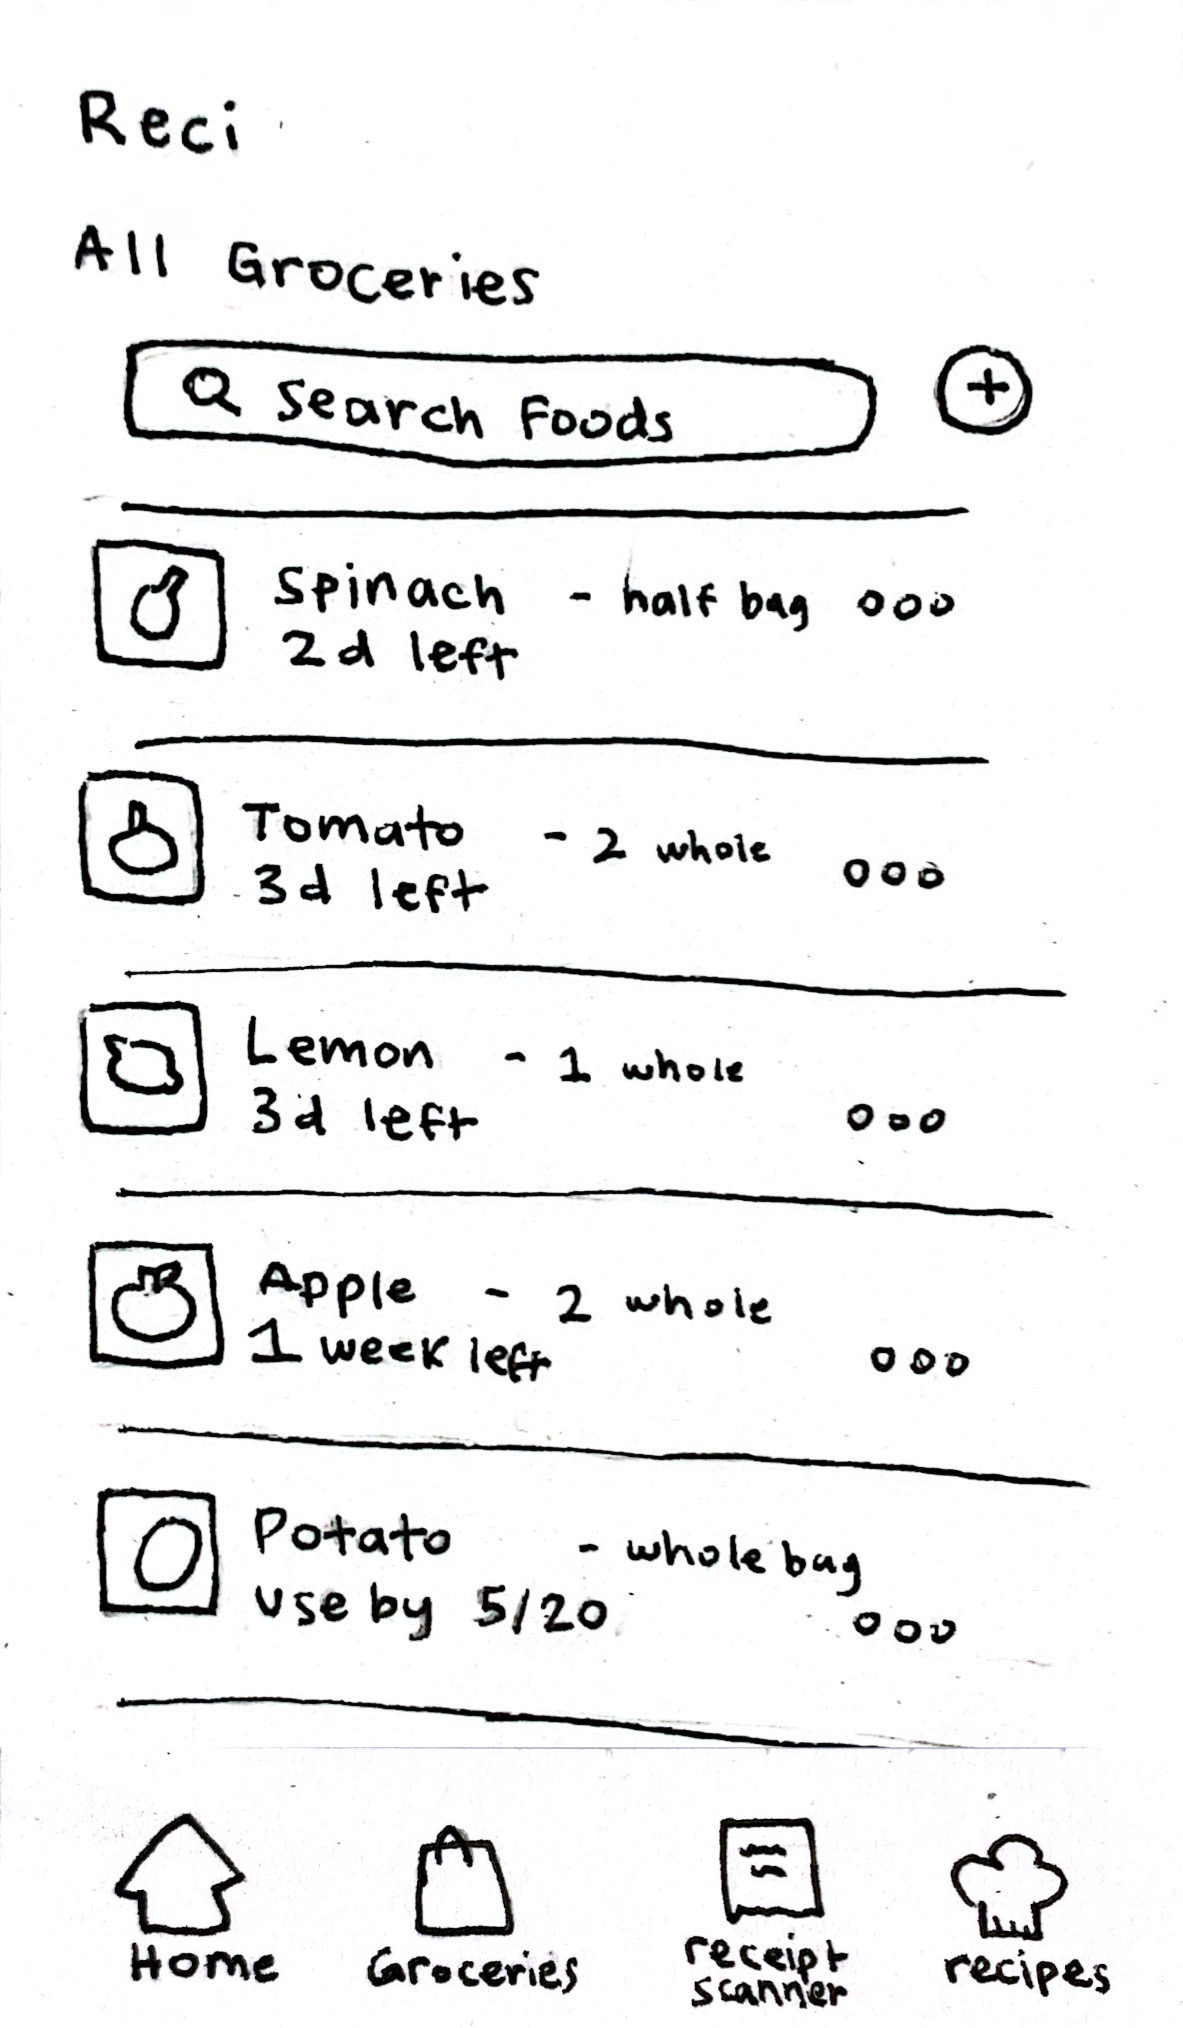 Reci
All Groceries
Search Foods
+
Spinach - half bag ooo
2d left
Tomato - 2 whole
3d left ooo
Lemon - 1 whole
3d left ooo
Apple - 2 whole
1 week left ooo
Potato - whole bag
use by 5/20 ooo
Home Groceries receipt scanner recipes